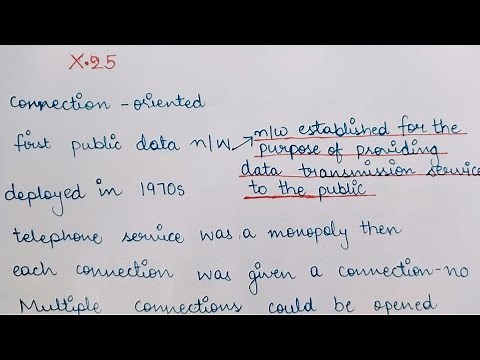 X.25
connection-oriented
first public data n/w → n/w established for the
purpose of providing
data transmission service
to the public
deployed in 1970s
telephone service was a monopoly then
each connection was given a connection-no
Multiple connections could be opened